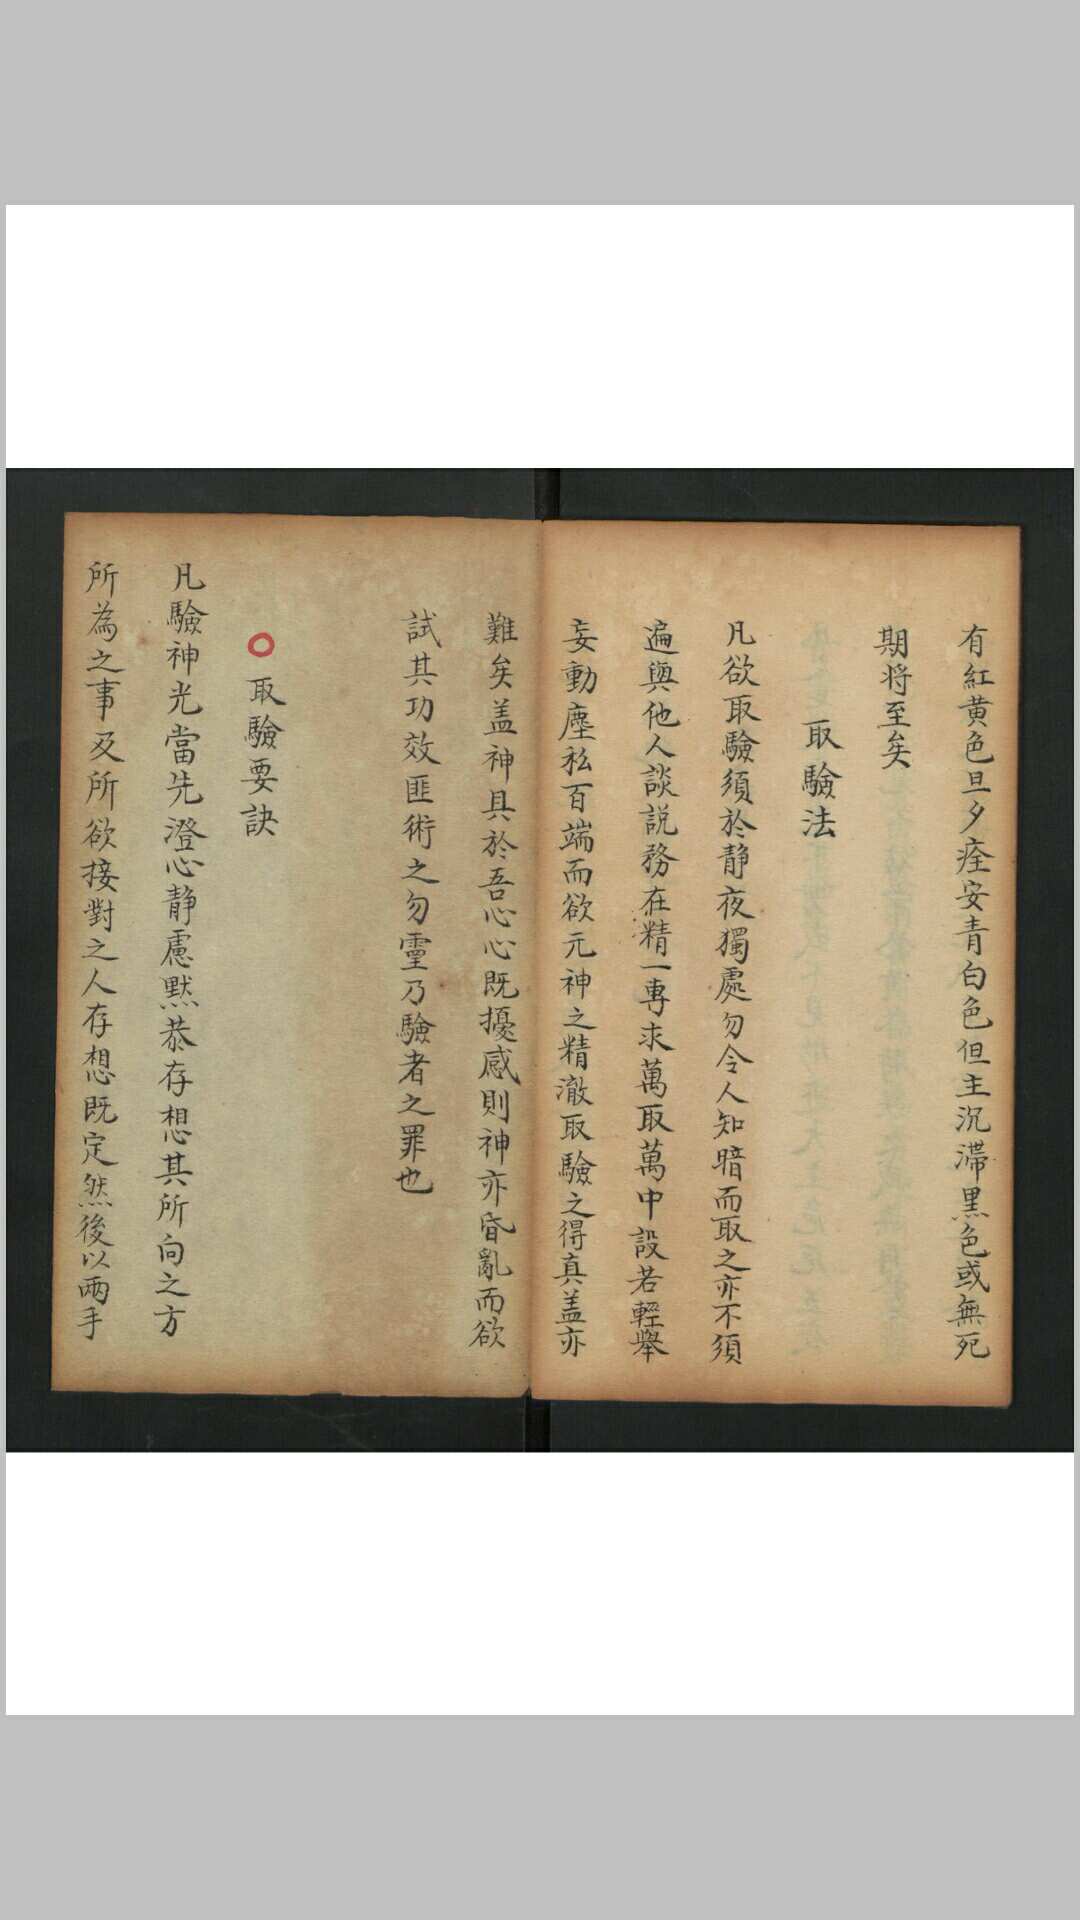 有紅黄色旦夕痊安青白色但主沉滯黒色或無死
期将至矣
取驗法
凡欲取驗須於静夜獨處勿令人知暗而取之亦不須
遍與他人談説務在精一專求萬取萬中設若輕舉
妄動塵私百端而欲元神之精澈取驗之得真盖亦
難矣盖神具於吾心心既擾惑則神亦昏亂而欲
試其功效匪術之勿靈乃驗者之罪也
取驗要訣
凡驗神光當先澄心静慮黙恭存想其所向之方
所為之事及所欲接對之人存想既定然後以兩手